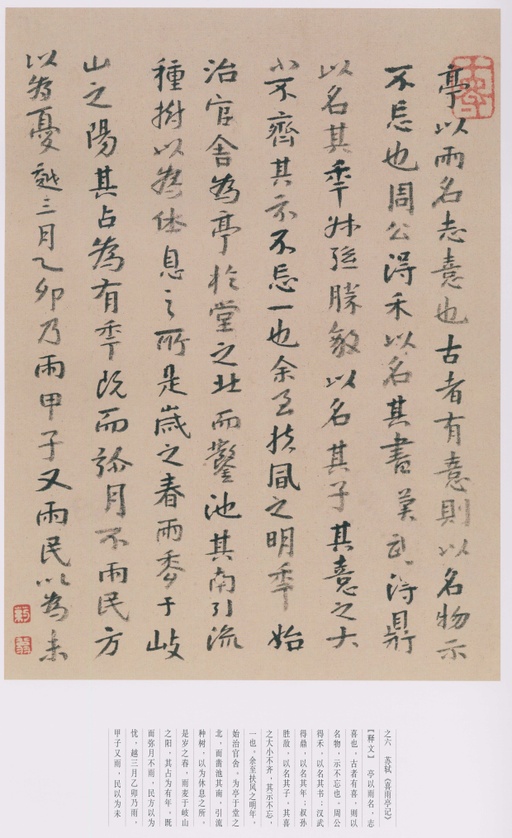 亭以雨名志憙也古者有憙則以名物示
不忘也周公得禾以名其書漢武得鼎
以名其年叔孫勝敵以名其子其憙之大
小不齊其示不忘一也余至扶風之明年始
治官舍為亭於堂之北而鑿池其南引流
種樹以為休息之所是歲之春雨麥于岐
山之陽其占為有年既而弥月不雨民方
以為憂越三月乙卯乃雨甲子又雨民以為未
之六 苏轼《喜雨亭记》
【释文】 亭以雨名,志
喜也。古者有喜,则以
名物,示不忘也。周公
得禾,以名其书;汉武
得鼎,以名其年;叔孙
胜敌,以名其子,其喜
之大小不齐,其示不忘,
一也。余至扶风之明年,
始治官舍,为亭于堂之
北,而凿池其南,引流
种树,以为休息之所,
是岁之春,而麦于岐山
之阳,其占为有年。既
而弥月不雨,民方以为
忧,越三月乙卯乃雨,
甲子又雨,民以为未